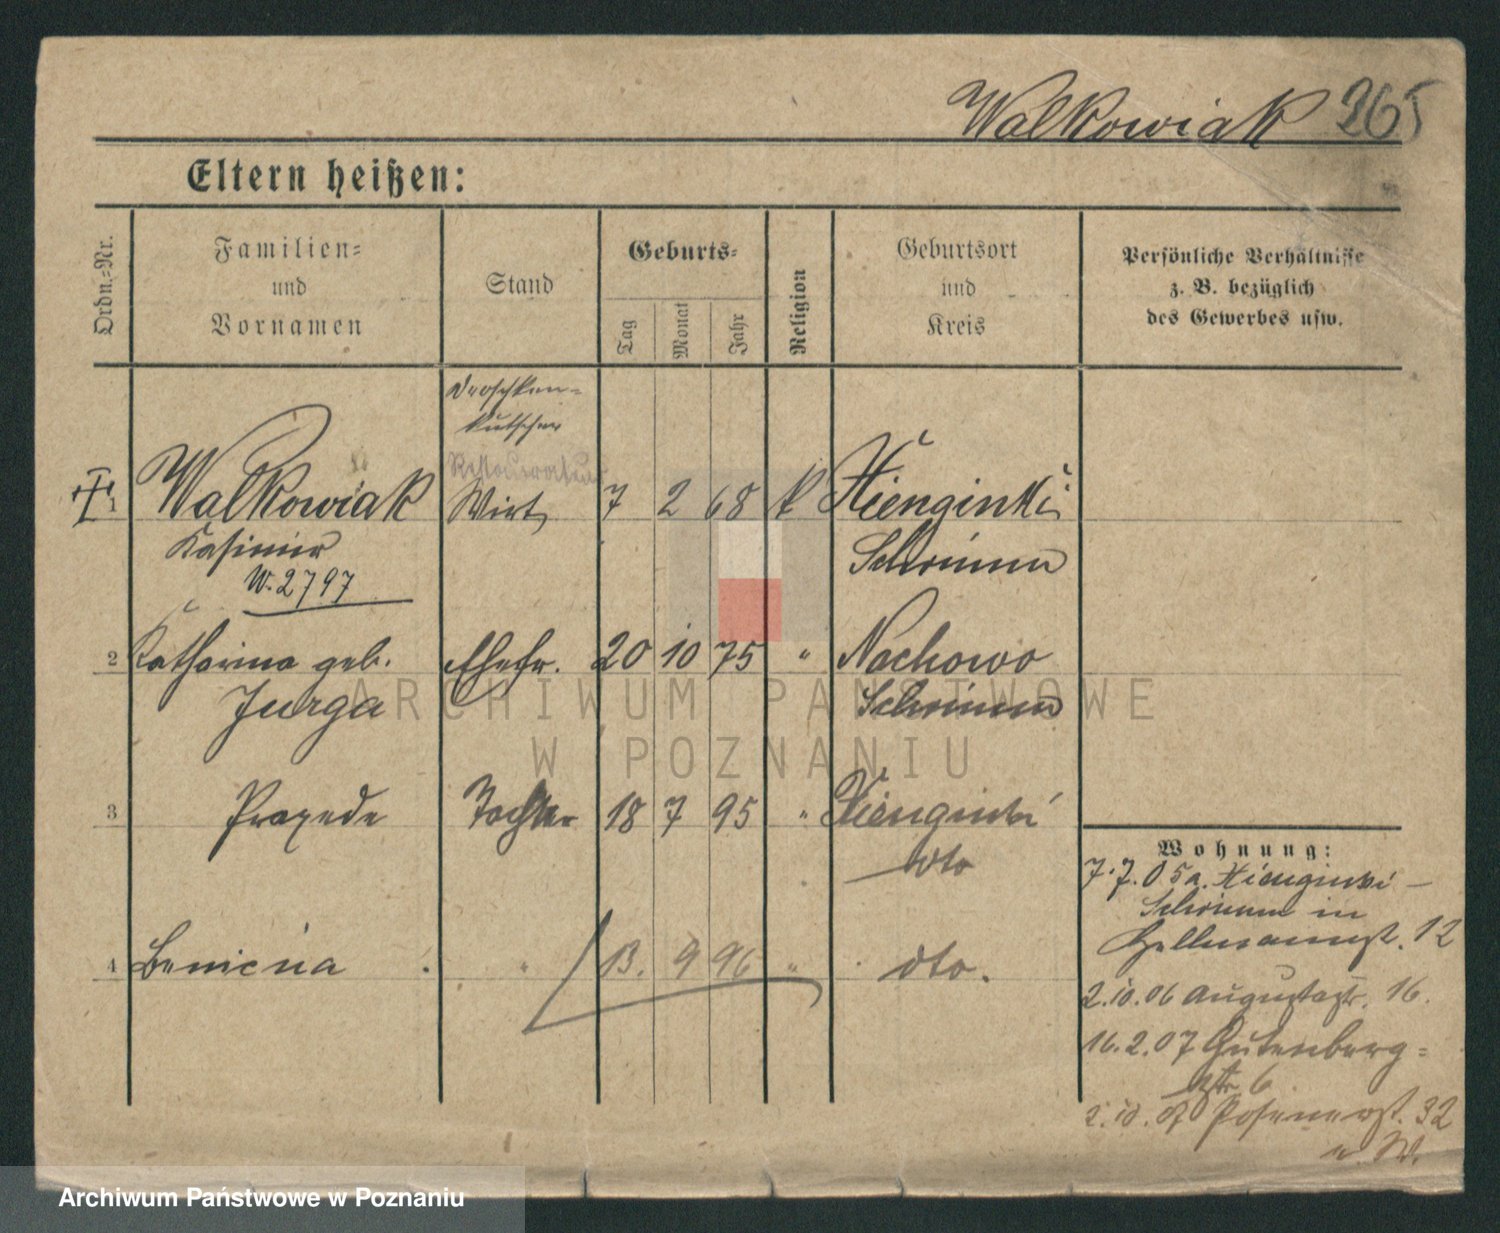 Walkowiak 265
Eltern heißen:
Ordn.-Nr.
Familien-
und
Vornamen
Stand
Geburts-
Tag
Monat
Jahr
Religion
Geburtsort
und
Kreis
Persönliche Verhältnisse
z. B. bezüglich
des Gewerbes usw.
Droschken-
kutscher
Restaurateur
1 Walkowiak Wirt 7 2 68 k Xienginki
Kasimir Schrimm
W. 2797
2 Katharina geb. Ehefr. 20 10 75 " Nochowo
Jurga Schrimm
3 Praxede Tochter 18 7 95 " Xienginki
dto
4 " 13. 9 96 " dto.
Wohnung:
7.7.05 a. Xienginki -
Schrimm in
Hellmannst. 12
2.10.06 Augustastr. 16.
16.2.07 Gutenberg-
str 6
2.10.07 Posenerst. 32
ARCHIWUM PAŃSTWOWE
W POZNANIU
Archiwum Państwowe w Poznaniu